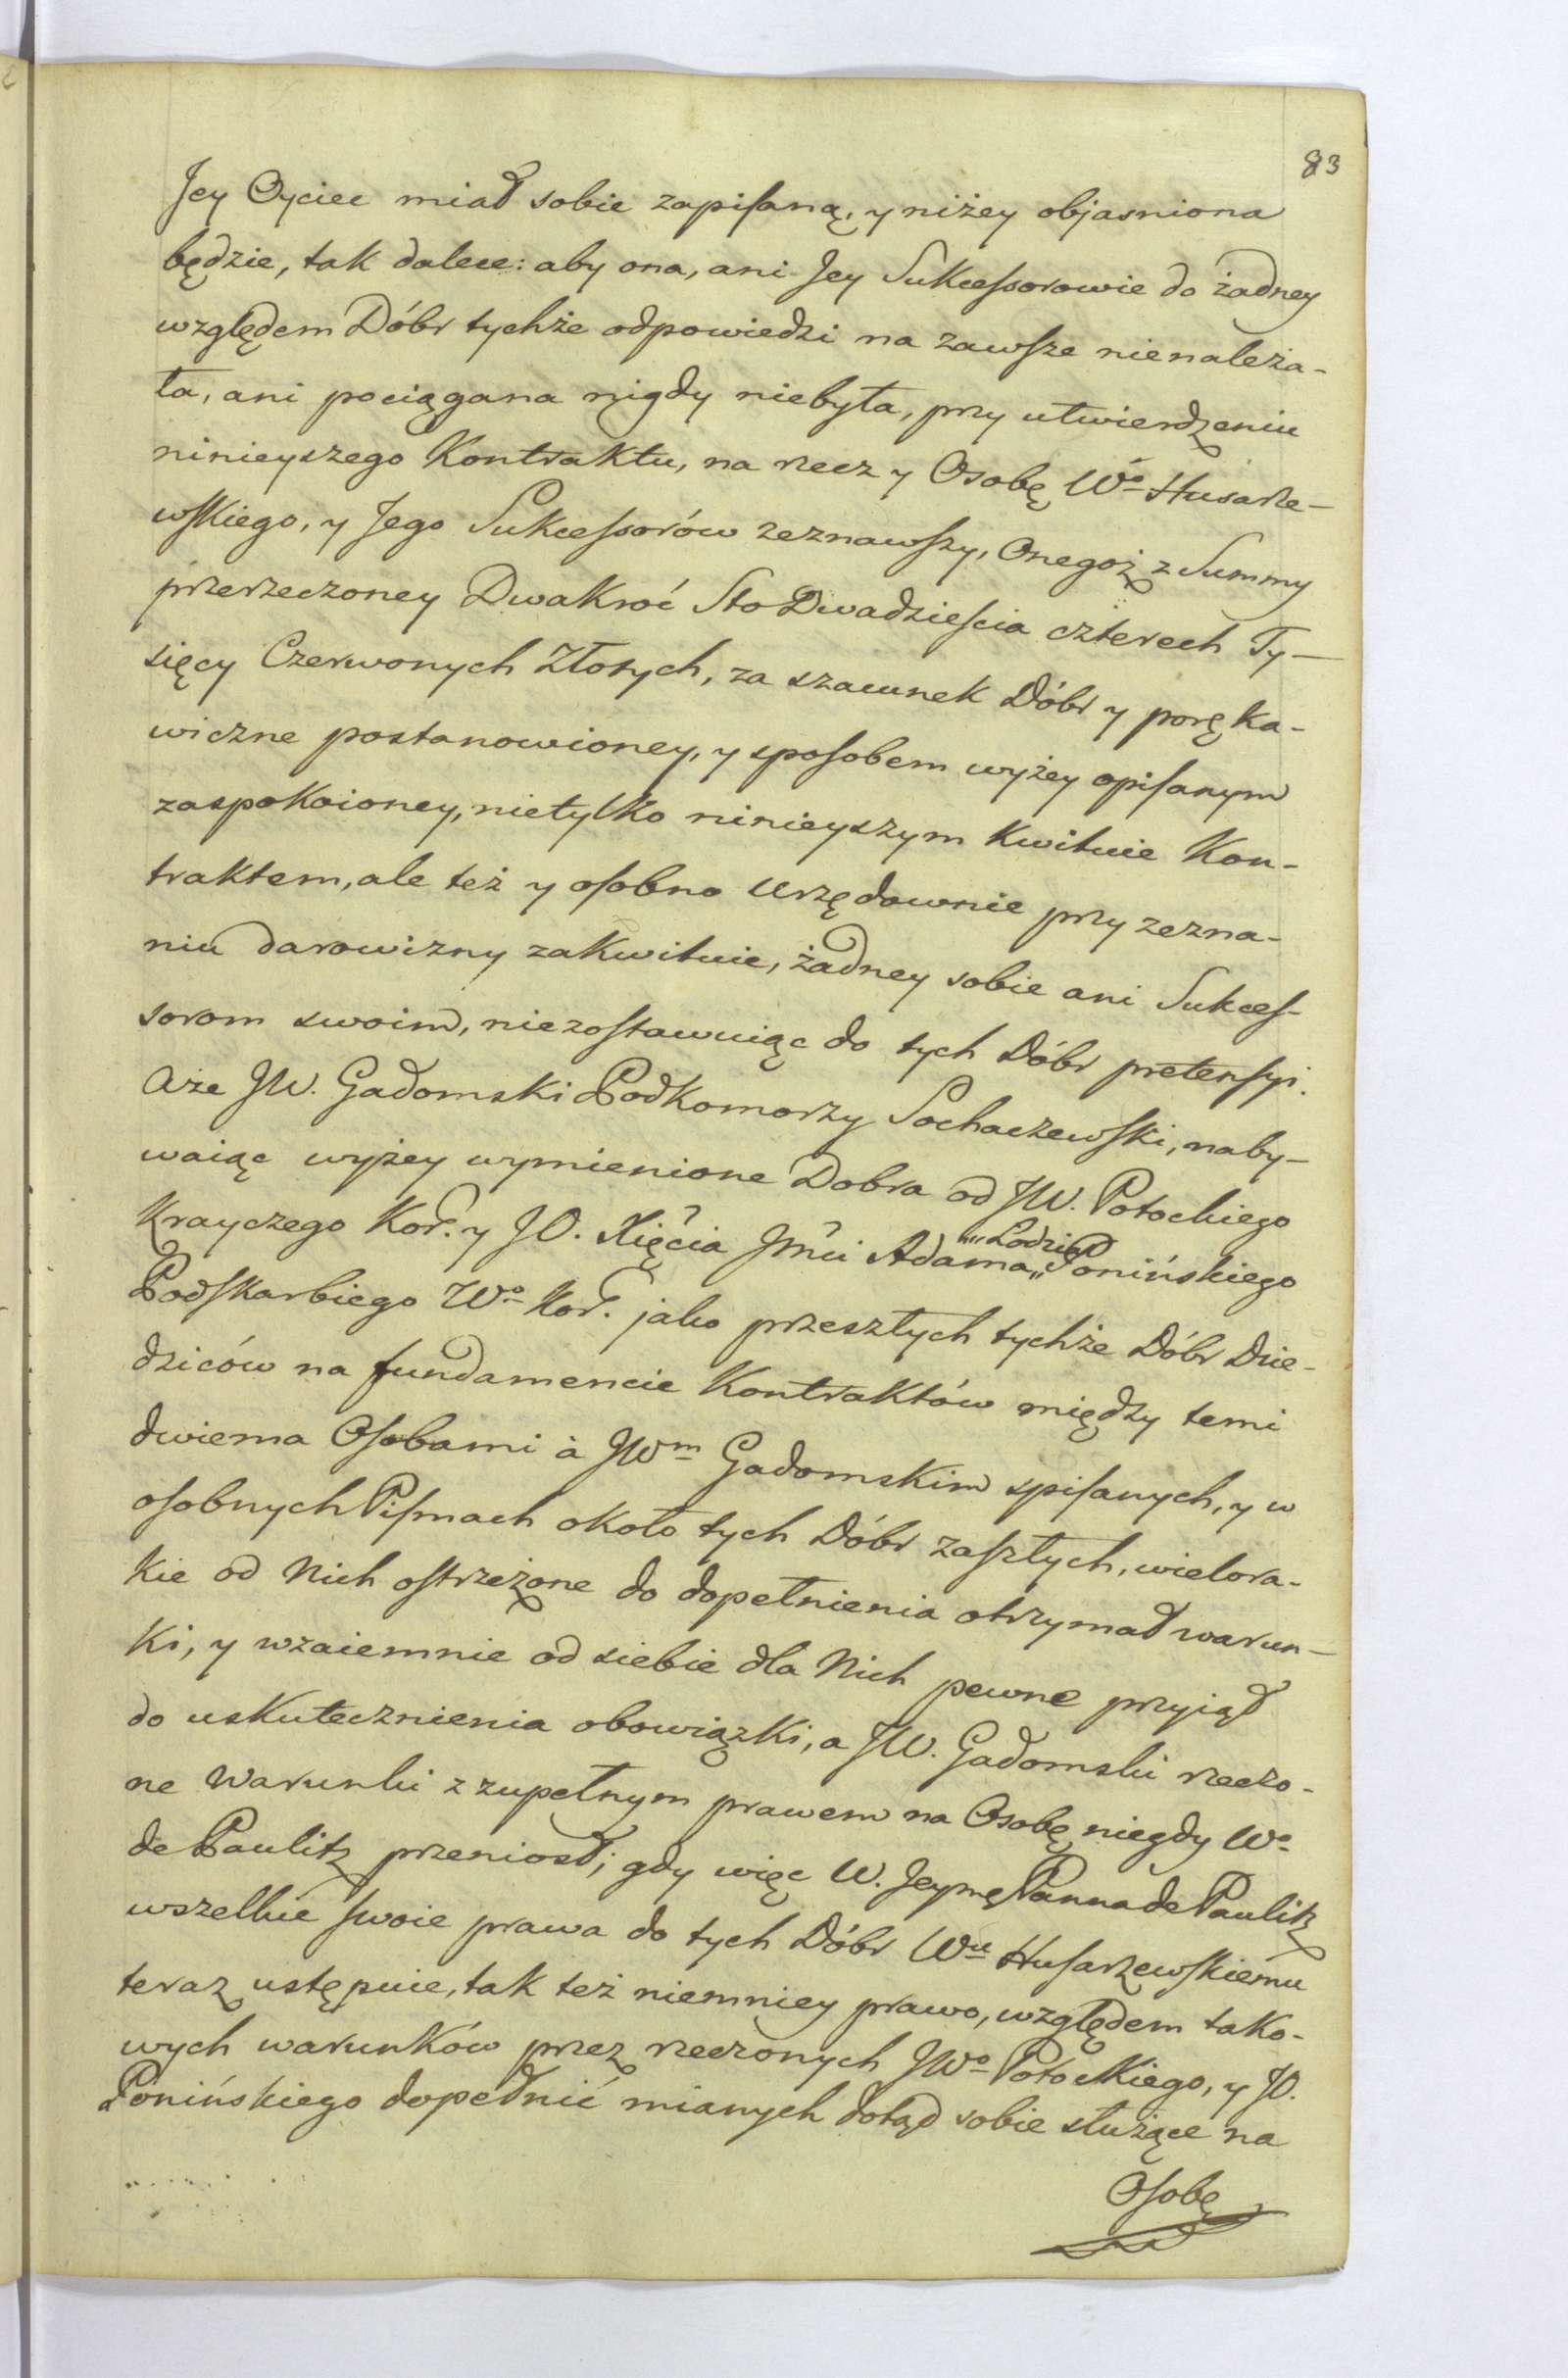 83
Jey Oyciec miał sobie zapisaną, y niżey objasniona
będzie, tak dalece: aby ona, ani Jey Sukcessorowie do żadney
względem Dóbr tychże odpowiedzi na zawsze nienależa-
ła, ani pociągana nigdy niebyła, przy utwierdzeniu
ninieyszego Kontraktu, na rzecz y Osobę Wo Husarze-
wskiego, y Jego Sukcessorów zeznawszy, Onegoż z Summy
przerzeczoney Dwakroć Sto Dwadzieścia czterech Ty-
sięcy Czerwonych Złotych, za szacunek Dóbr y poręka-
wiczne postanowioney, y sposobem wyżey opisanym
zaspokoioney, nietylko ninieyszym Kwituie Kon-
traktem, ale też y osobno Urzędownie przy zezna-
niu darowizny zakwituie, żadney sobie ani Sukces-
sorom swoim, niezostawuiąc do tych Dóbr pretensyi.
Aże JW. Gadomski Podkomorzy Sochaczewski, naby-
waiąc wyżey wymienione Dobra od JW. Potockiego
Krayczego Kor. y JO. Xięcia Jmci Adama „Lodzia„ Ponińskiego
Podskarbiego Wo Kor. jako przeszłych tychże Dóbr Dzie-
dziców na fundamencie Kontraktów między temi
dwiema Osobami à JWm Gadomskim spisanych, y w
osobnych Pismach około tych Dóbr zaszłych, wielora-
kie od Nich ostrzeżone do dopełnienia otrzymał warun-
ki, y wzaiemnie od siebie dla Nich pewne przyiął
do uskutecznienia obowiązki, a JW. Gadomski rzeczo-
ne Warunki z zupełnym prawem na Osobę niegdy Wo
de Paulitz przeniosł; gdy więc W. Jeymę Panna de Paulitz
wszelkie swoie prawa do tych Dóbr Wu Husarzewskiemu
teraz ustępuie, tak też niemniey prawo, względem tako-
wych warunków przez rzeczonych JWo Potockiego, y JO.
Ponińskiego dopełnić mianych dotąd sobie służące na
Osobę